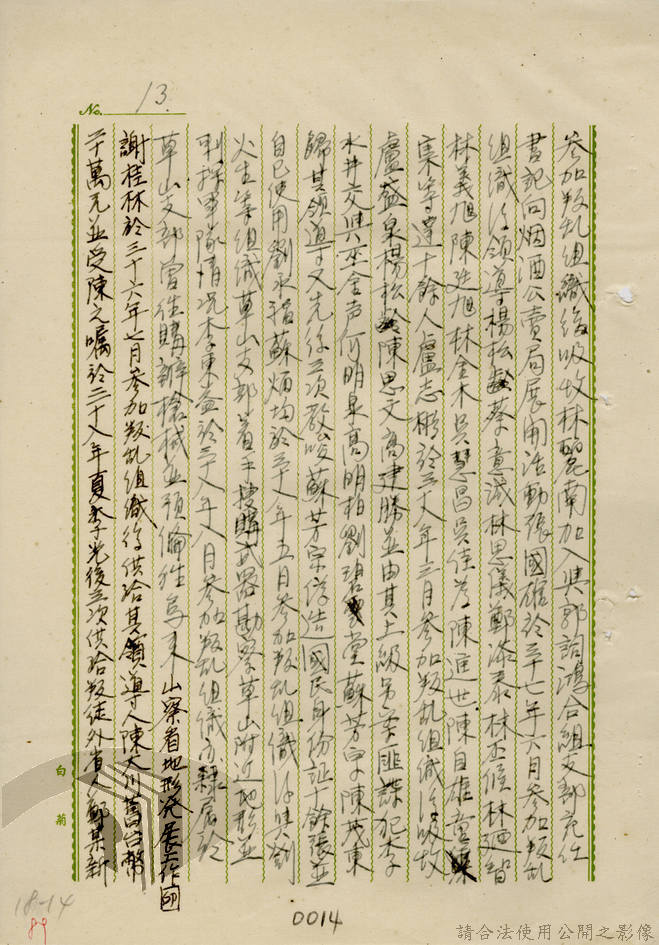 No. 13.
參加叛乱組織後吸收林麗南加入與郭詔鴻合組支部充任
書記向烟酒公賣局展開活動張國雄於三十七年六月參加叛乱
組織後領導楊松齡蔡意誠林思儀鄭添泰林丕侯林迺智
林義旭陳廷旭林金木吳慧昌吳佳 陳進世陳自雄童
集 等達十餘人盧志彬於三十八年三月參加叛乱組織後吸收
盧盛泉楊松齡陳思文高建勝並由其上級另案匪諜犯李
水井交與巫金声何明泉高明柏劉碧堂蘇芳宗陳茂東
歸其領導又先後三次教唆蘇芳宗偽造國民身份証十餘張並
自己使用劉永福蘇炳均於三十八年五月參加叛乱組織後與劉
火生等組織草山支部着手搜購武器勘察草山附近地形並
刺探軍隊情况李東益於三十八年八月參加叛乱組織亦隸屬於
草山支部曾往購辦槍械並預備往烏來山察看地形発展工作
謝桂林於三十六年七月參加叛乱組織後供給其領導人陳大川舊台幣
二十萬元並受陳之嘱於三十八年夏季先後三次供給叛徒外省人鄭某新
白菊
18-14
89
0014
請合法使用公開之影像